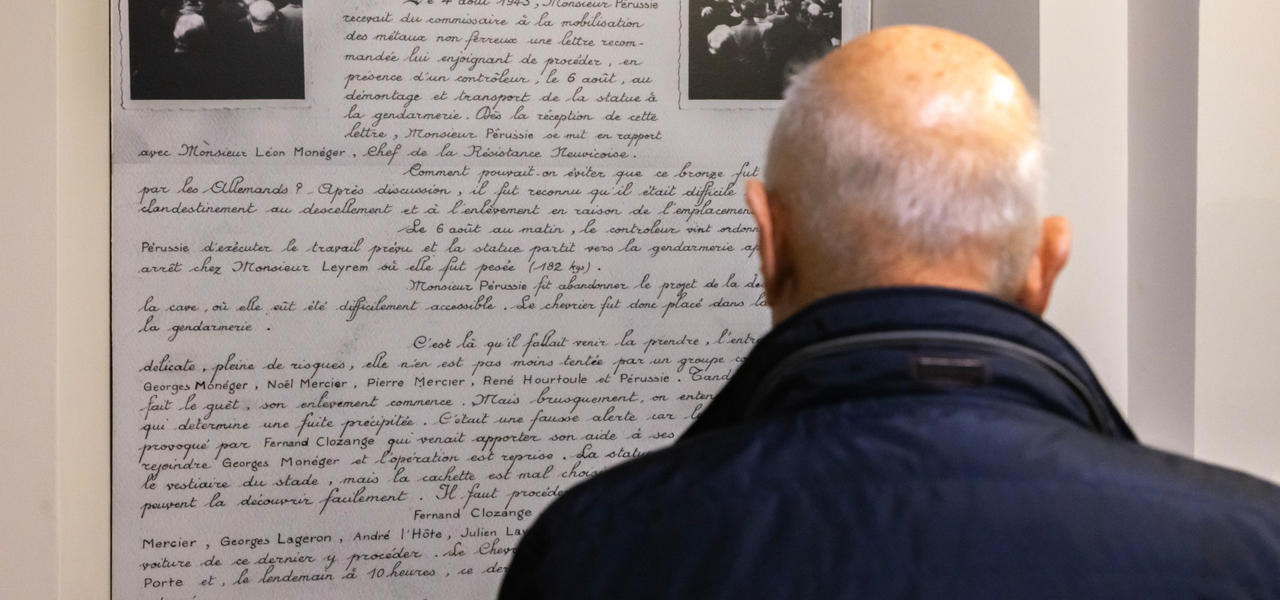 Le 4 août 1943, Monsieur Pérussie
recevait du commissaire à la mobilisation
des métaux non ferreux une lettre recom-
mandée lui enjoignant de procéder, en
présence d'un contrôleur, le 6 août, au
démontage et transport de la statue à
la gendarmerie. Dès la réception de cette
lettre, Monsieur Pérussie se mit en rapport
avec Monsieur Léon Monéger, Chef de la Résistance Neuvicoise.
Comment pouvait-on éviter que ce bronze fut
par les Allemands ? - Après discussion, il fut reconnu qu'il était difficile
clandestinement au descellement et à l'enlèvement en raison de l'emplacement
Le 6 août au matin, le controleur vint ordonn
Pérussie d'exécuter le travail prévu et la statue partit vers la gendarmerie ap
arrêt chez Monsieur Leyrem où elle fut pesée (182 kgs).
Monsieur Pérussie fit abandonner le projet de la de
la cave, où elle eût été difficilement accessible. Le chevrier fut donc placé dans la
la gendarmerie.
C'est là qu'il fallait venir la prendre, l'entre
délicate, pleine de risques, elle n'en est pas moins tentée par un groupe co
Georges Monéger, Noël Mercier, Pierre Mercier, René Hourtoule et Pérussie. Tand
fait le guêt, son enlevement commence. Mais brusquement, on enten
qui determine une fuite précipitée. C'était une fausse alerte car l
provoqué par Fernand Clozange qui venait apporter son aide à ses
rejoindre Georges Monéger et l'opération est reprise. La statu
le vestiaire du stade, mais la cachette est mal chois
peuvent la découvrir facilement. Il faut procéde
Fernand Clozange
Mercier, Georges Lageron, André l'Hôte, Julien Lav
voiture de ce dernier y procéder. Le Chev
Porte et, le lendemain à 10 heures, ce der